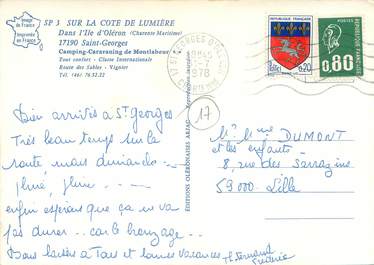 Image de France
Imprimée en France
SP 3 SUR LA COTE DE LUMIÈRE
Dans l'Ile d'Oléron (Charente Maritime)
17190 Saint-Georges
Camping-Caravaning de Montlabeur
Tout confort - Classe Internationale
Route des Sables - Vignier
Tél. (46) 76.52.22
17 ST GEORGES D'OLERON
18H45
-7
1978
CHARENTE MME
RÉPUBLIQUE FRANÇAISE
0,20
POSTES
0,80
FRANCE
EDITIONS OLÉRONAISES ARJAC
17
Bien arrivés à St Georges
Très beau temps sur la
route mais dimanche
pluie, pluie - - -
enfin espérons que ça ne va
pas durer - car le bronzage - -
Bons baisers à Tous et bonnes vacances
Frédéric
M. Mme DUMONT
et les enfants -
8, rue des Sarrazins
59000 - Lille